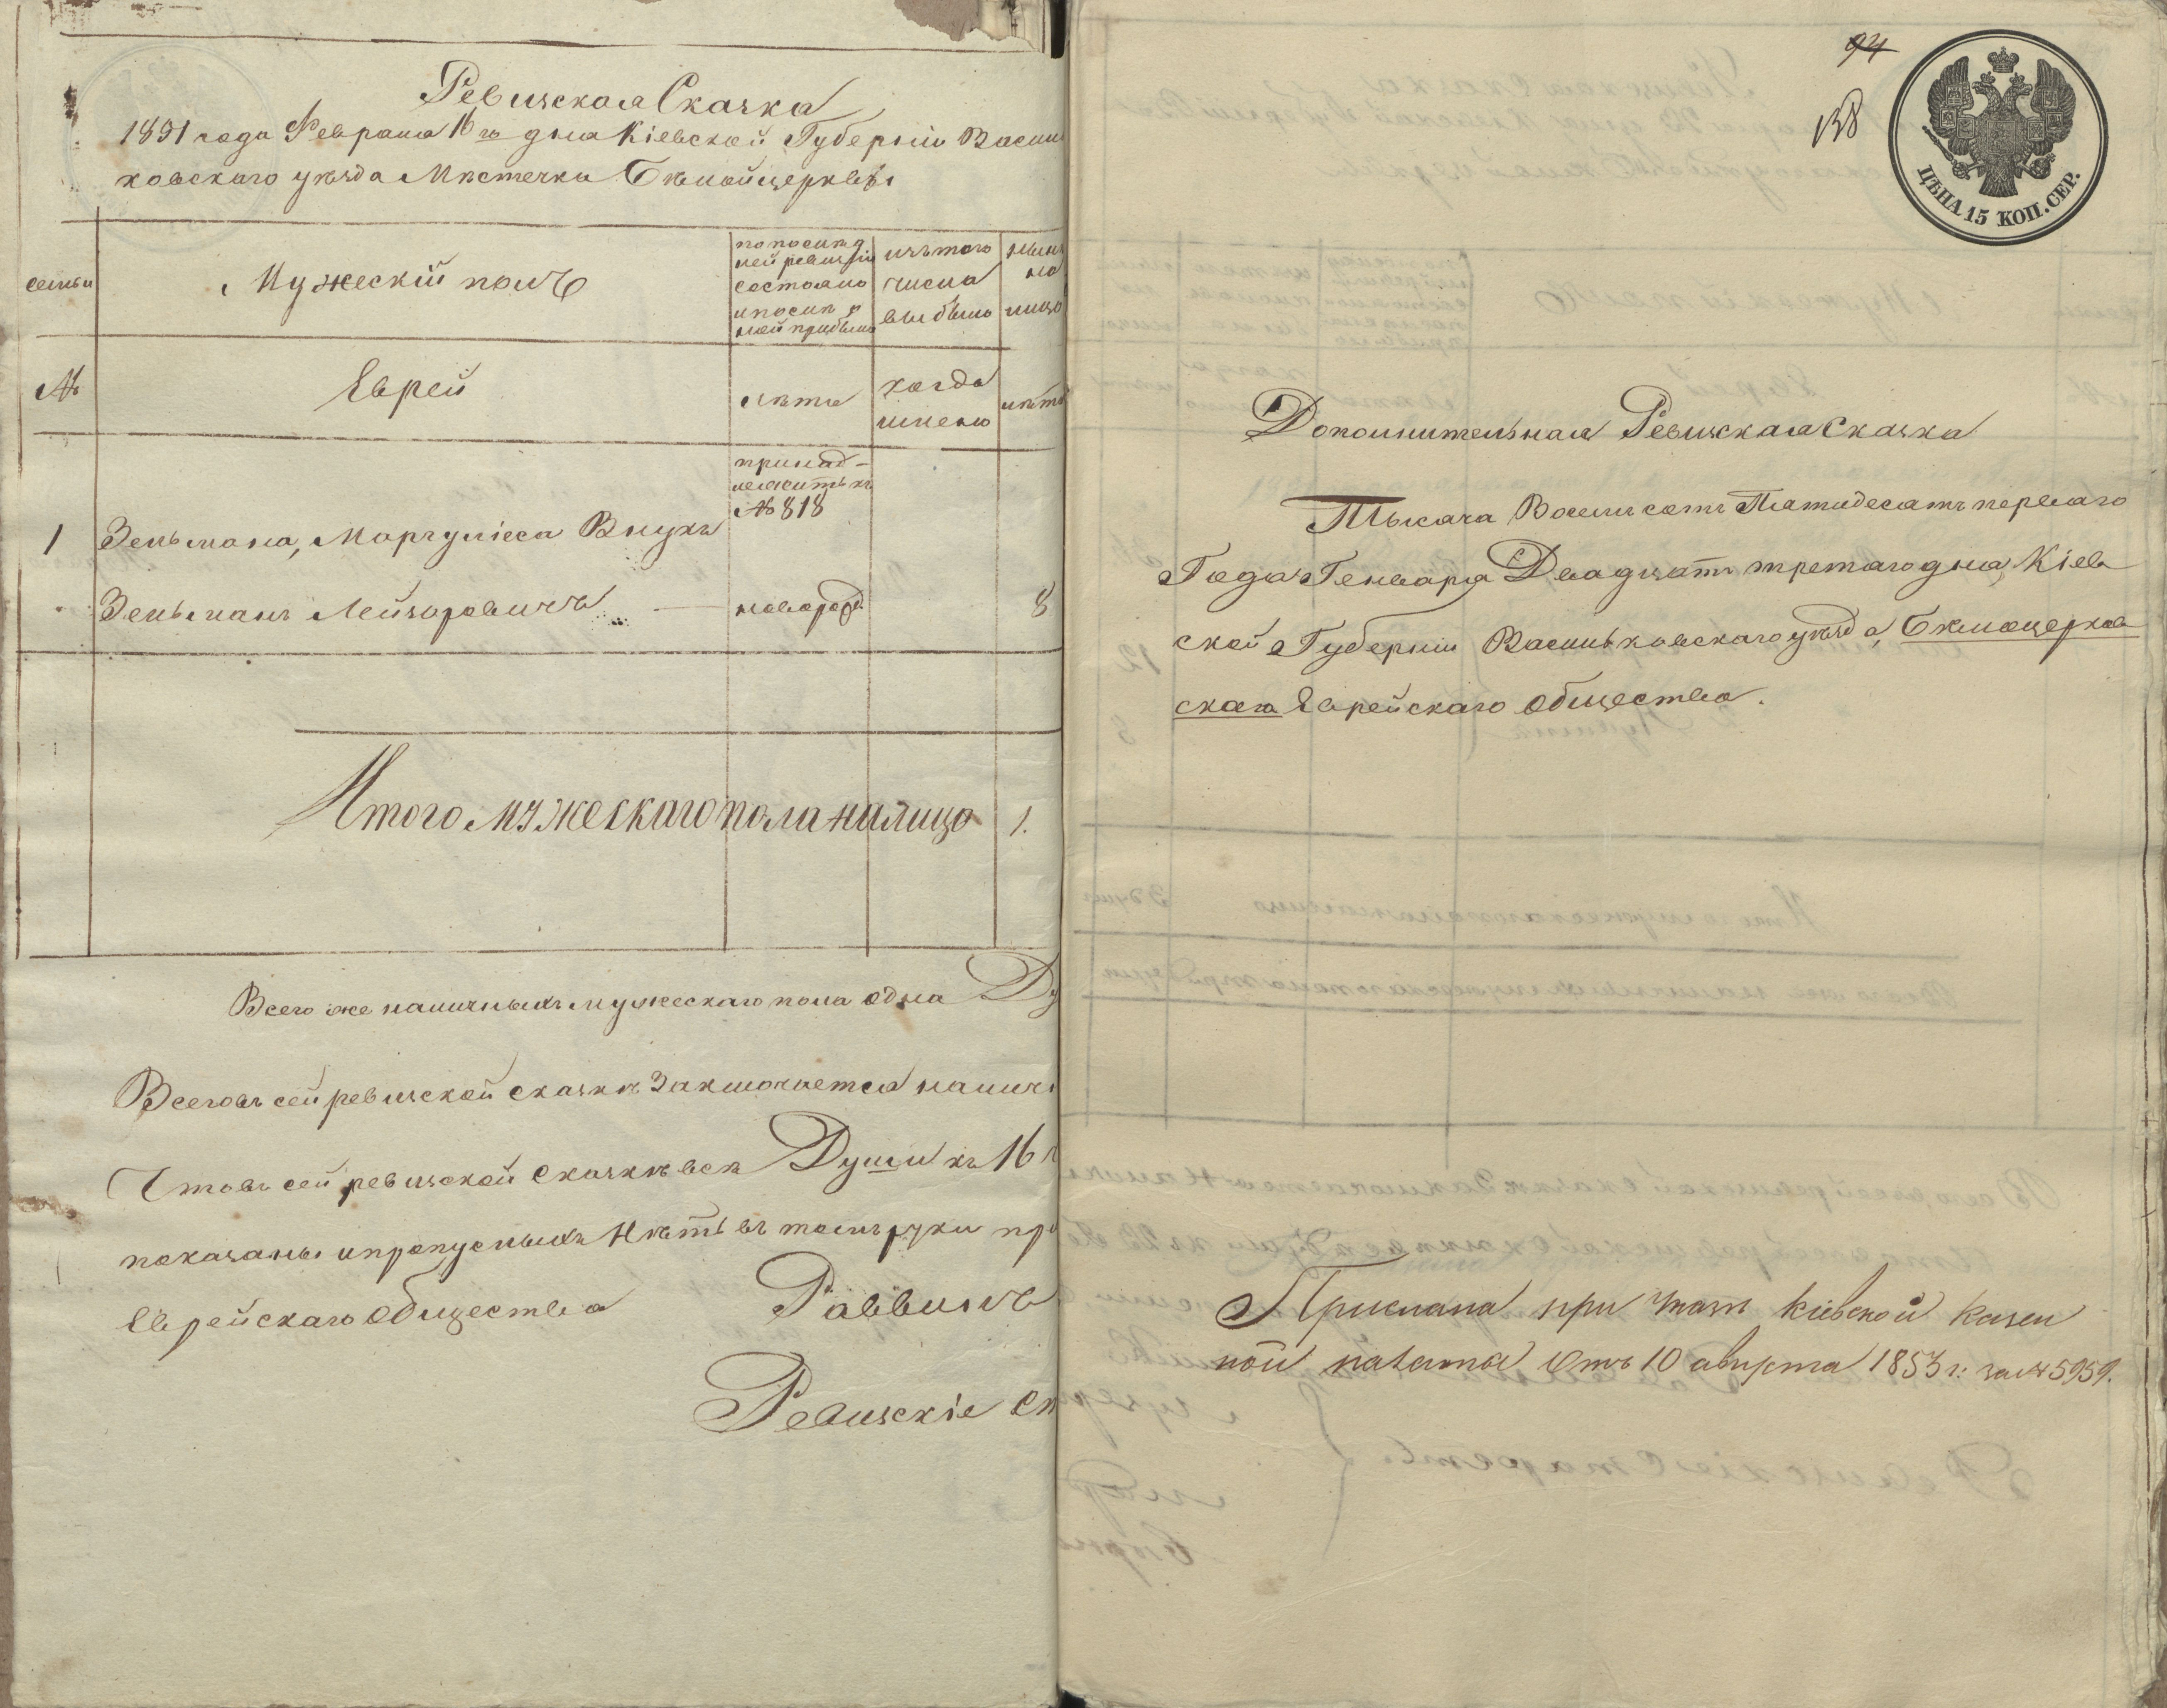 Ревизская Сказка
1851 года Февраля 16го дня Кіевской Губерніи Василь
ковскаго уѣзда Мѣстечка Бѣлойцеркви
семьи
Мужескій полъ
по послѣд
ней ревизіи
состояло
и послѣ о
ной прибыло
изъ того
числа
выбыло
нынѣ
на
лицо
№
Еврей
лѣта
когда
имено
лѣта
принад-
лежитъ къ
№ 818
1 Зельмана, Маргуліеса Внукъ
Зельманъ Лейзоровичъ — новорожд 8
Итого мужескаго пола налицо 1.
Всего же наличныхъ мужескаго пола одна Ду
Всего въ сей ревизской сказкѣ Заключается налич
Что въ сей ревизской сказкѣ всѣ Души къ 16
показаны и пропусныхъ Нѣтъ въ томъ руки пр
Еврейскаго Общества Раввинъ
Ревизскіе Ст
94
138
ЦѢНА 15 КОП. СЕР.
Дополнительная Ревизская Сказка
Тысяча Восемьсотъ Пятидесятъ перваго
Года Генваря Двадцать третяго дня, Кіев
ской Губерніи Васильковскаго уѣзда, Бѣлоцерков
скаго Еврейскаго Общества.
Прислана при указѣ Кіевской Казен
ной палаты отъ 10 августа 1853 г: за № 5959.